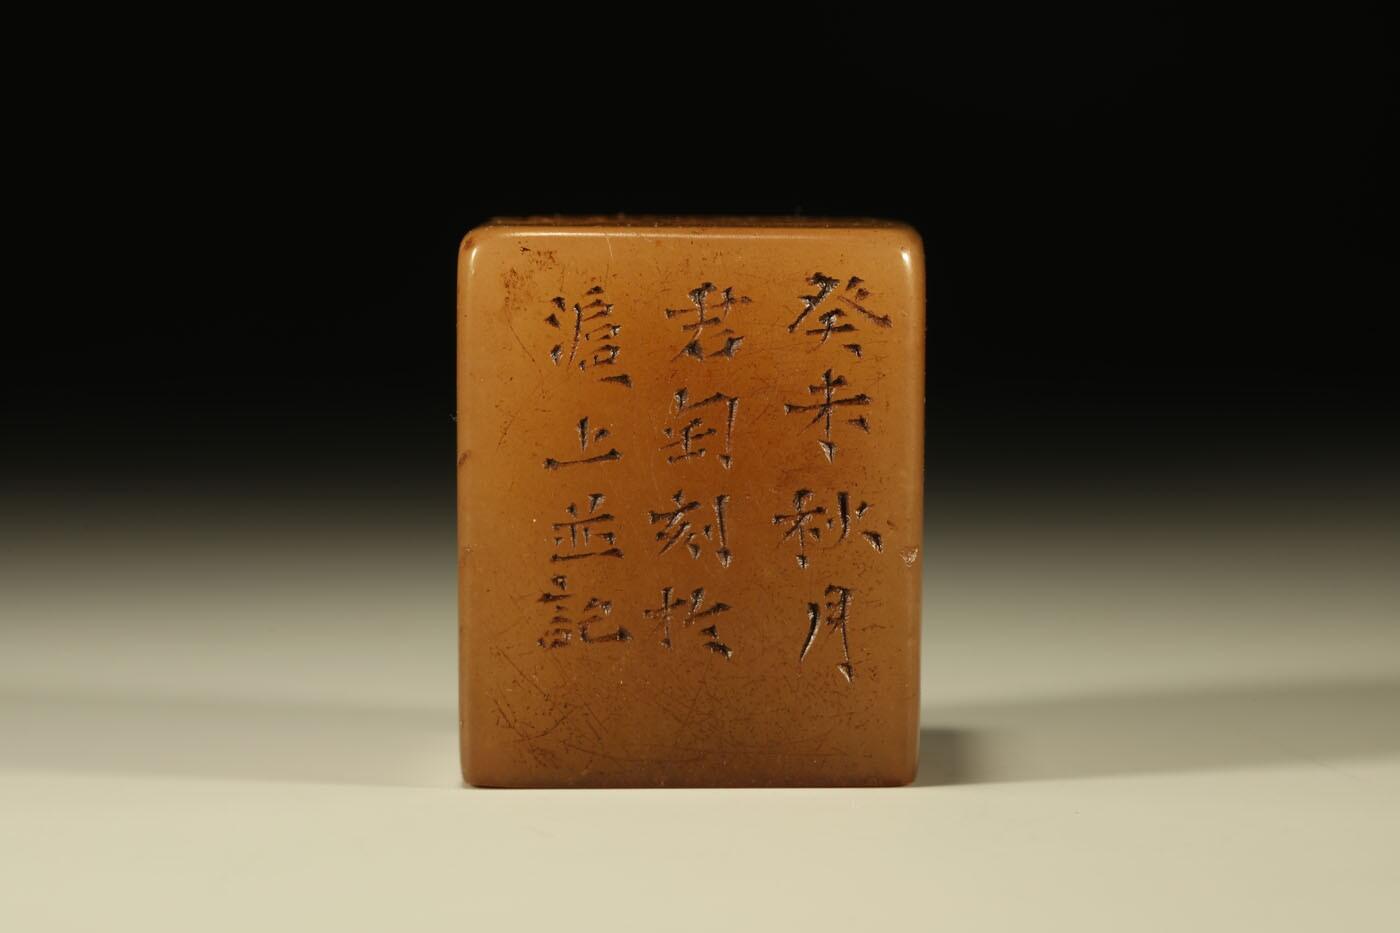 癸未秋月
君匋刻於
滬上並記